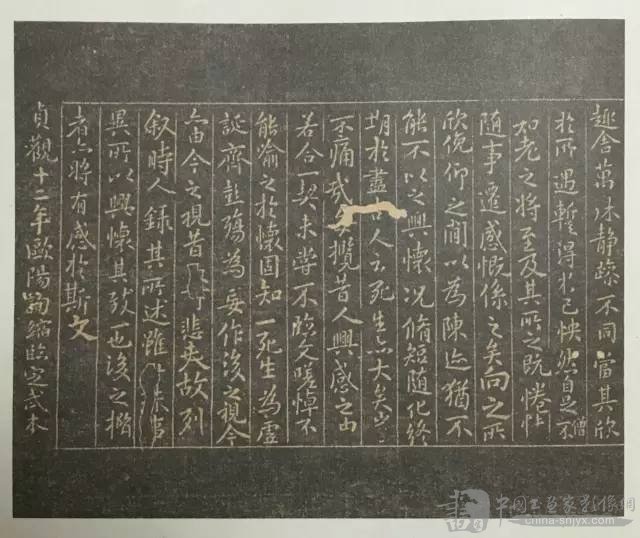 趣舍萬殊静躁不同當其欣
於所遇蹔得於己怏然自足不
僧
知老之將至及其所之既惓情
隨事遷感慨係之矣向之所
欣俛仰之閒以為陳迹猶不
能不以之興懷況脩短隨化終
期於盡古人云死生亦大矣豈
不痛哉每攬昔人興感之由
若合一契未甞不臨文嗟悼不
能喻之於懷固知一死生為虛
誕齊彭殤為妄作後之視今
亦由今之視昔悲夫故列
叙時人錄其所述雖殊事
異所以興懷其致一也後之攬
者亦將有感於斯文
貞觀十一年歐陽詢縮臨定武本
中國書畫家影像網
china-snjyx.com